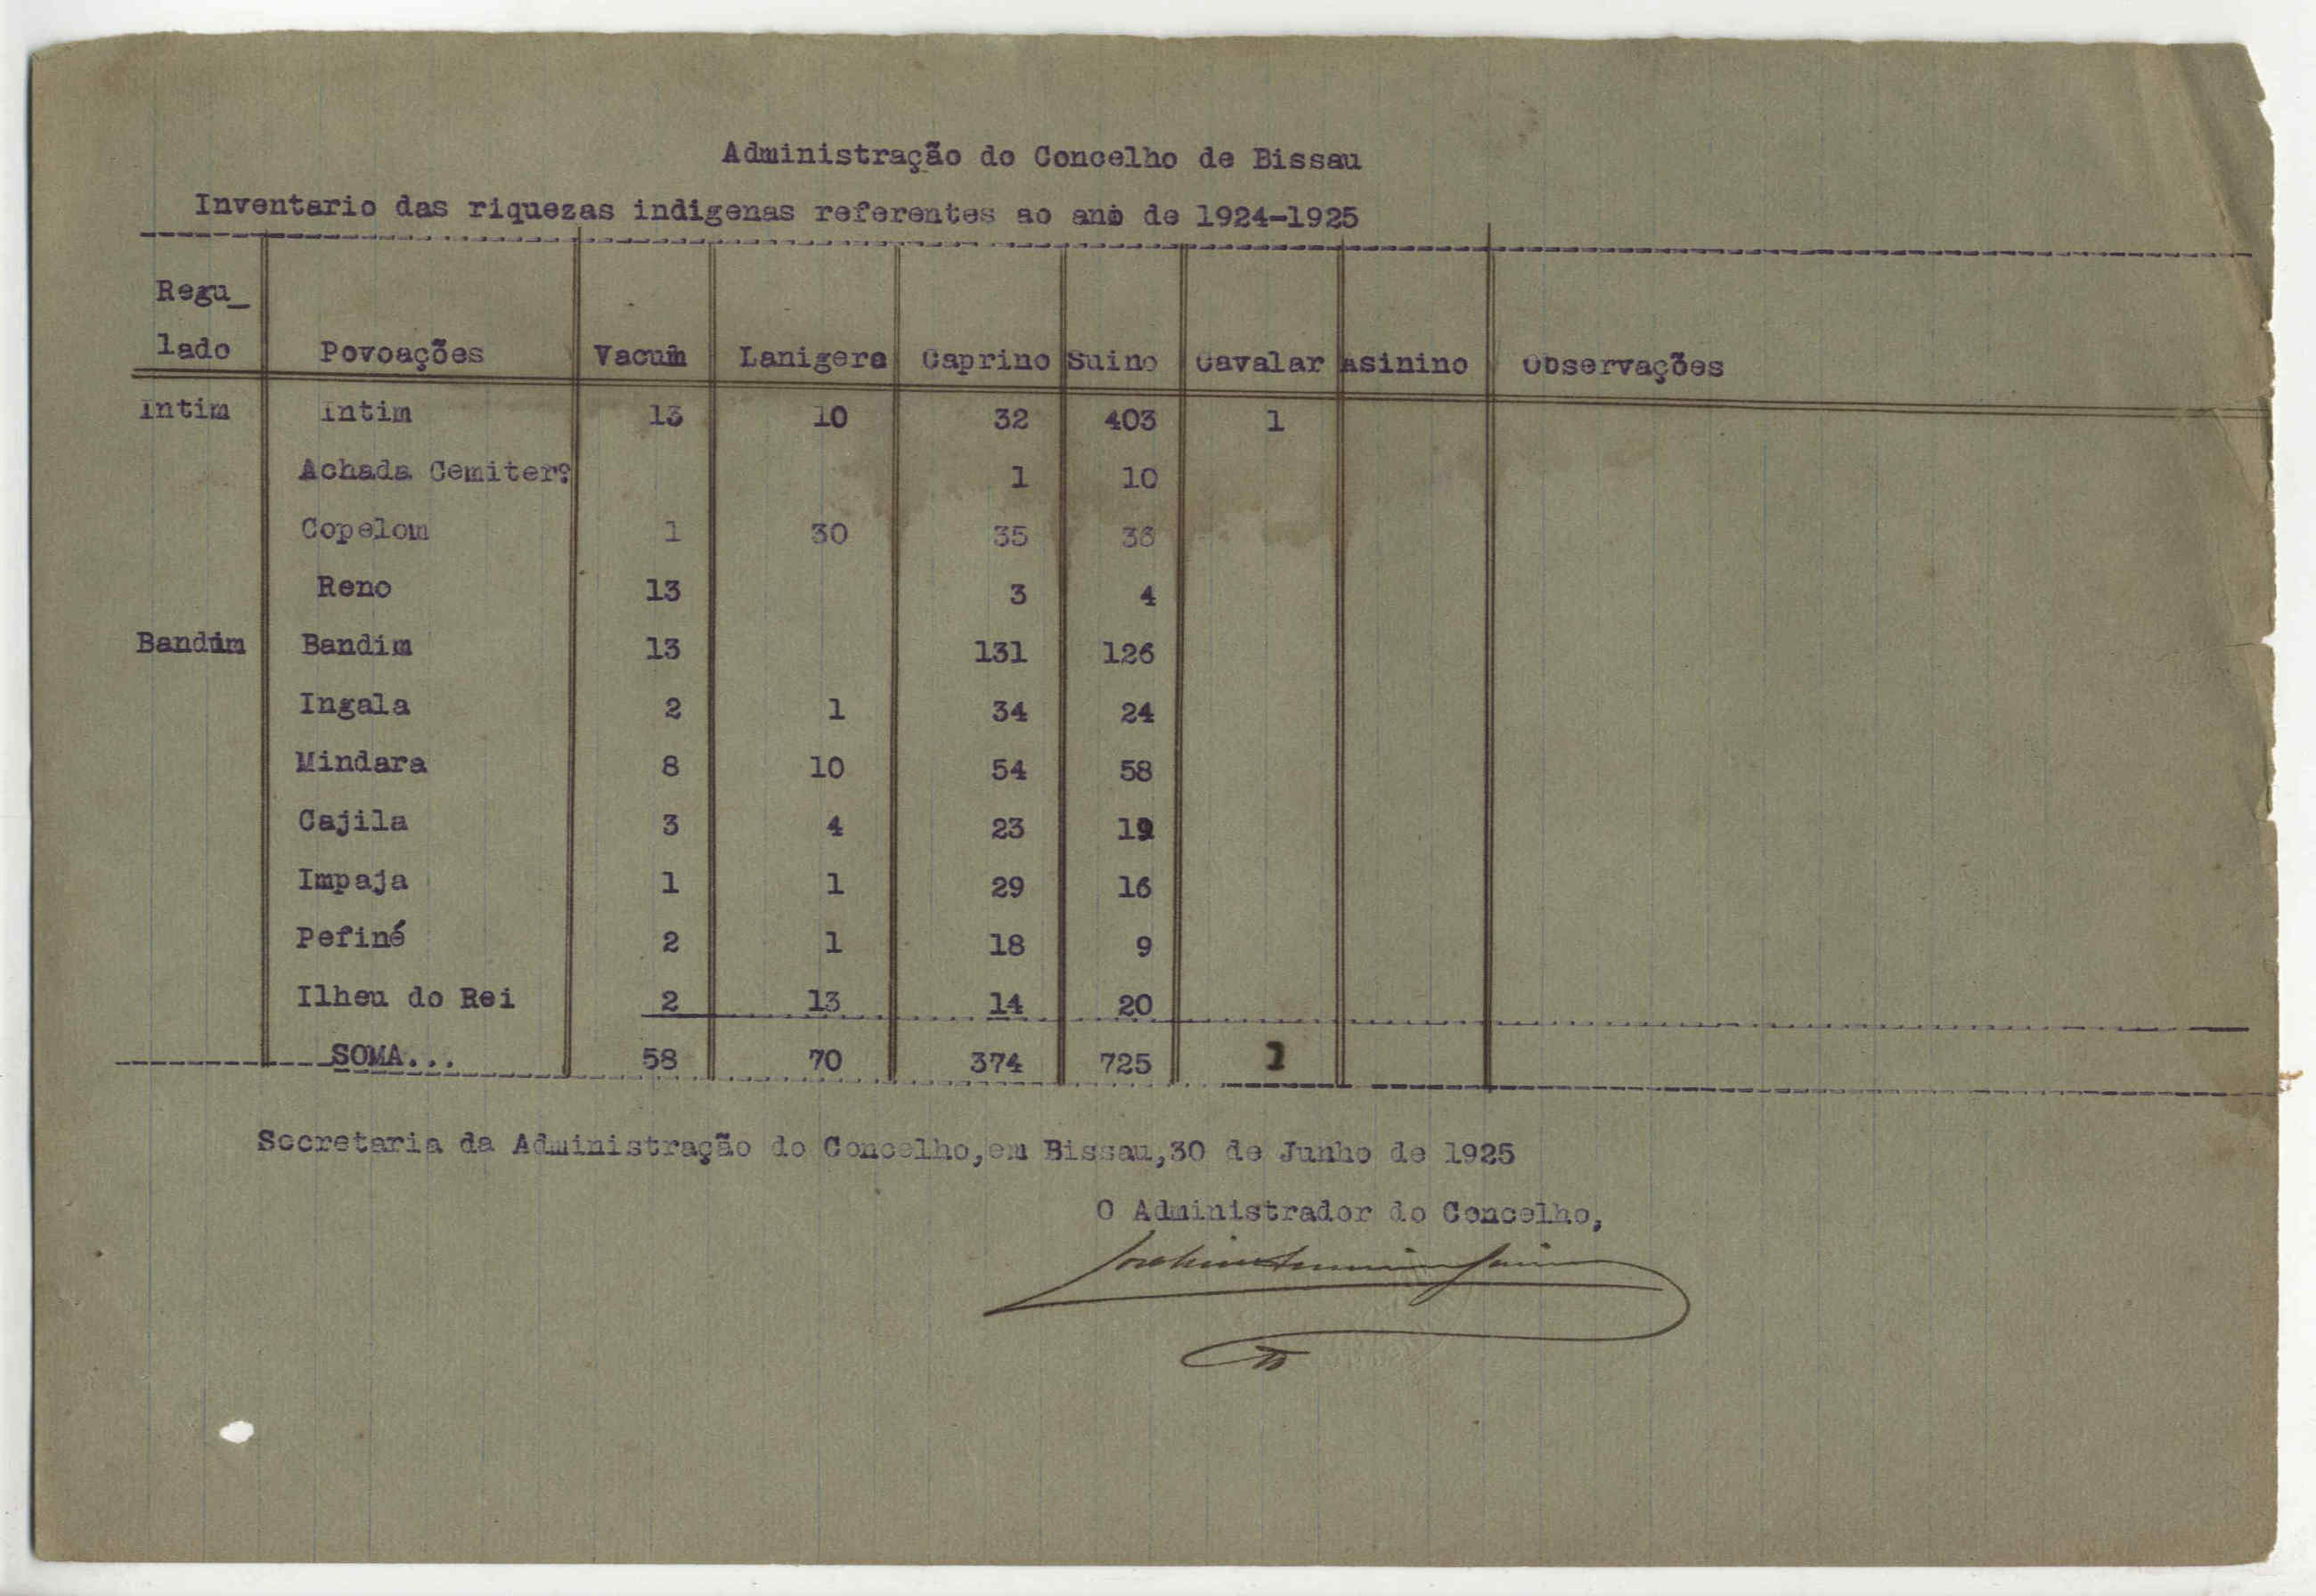 Administração do Concelho de Bissau
Inventario das riquezas indigenas referentes ao ano de 1924-1925
Regu_
lado Povoações Vacum Lanigero Caprino Suino Cavalar Asinino Observações
Intim Intim 13 10 32 403 1
Achada Cemiterº 1 10
Copelom 1 30 35 36
Reno 13 3 4
Bandim Bandim 13 131 126
Ingala 2 1 34 24
Mindara 8 10 54 58
Cajila 3 4 23 19
Impaja 1 1 29 16
Pefiné 2 1 18 9
Ilheu do Rei 2 13 14 20
SOMA... 58 70 374 725 1
Secretaria da Administração do Concelho,em Bissau,30 de Junho de 1925
O Administrador do Concelho,